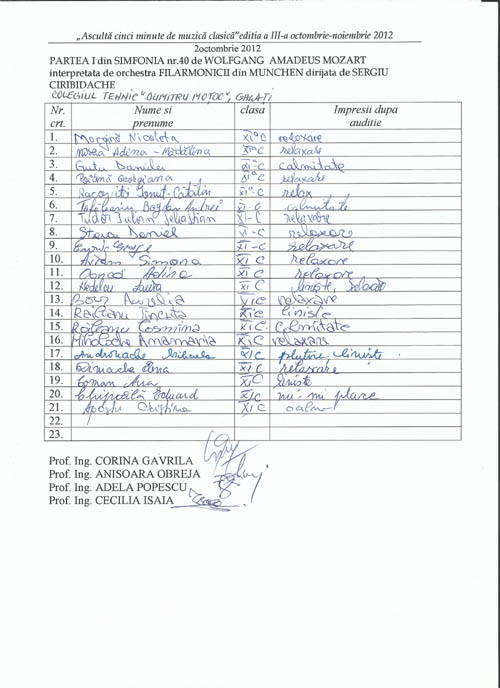 „Ascultă cinci minute de muzică clasică"editia a III-a octombrie-noiembrie 2012
2octombrie 2012
PARTEA I din SIMFONIA nr.40 de WOLFGANG AMADEUS MOZART
interpretata de orchestra FILARMONICII din MUNCHEN dirijata de SERGIU
CIRIBIDACHE
COLEGIUL TEHNIC "DUMITRU MOTOC", GALATI
Nr. crt. Nume si prenume clasa Impresii dupa auditie
1. Morgină Nicoleta XI-C relaxare
2. Adina-Mădălina XI-C relaxare
3. Gutu Daniela XI-C calmitate
4. Georgiana XI-C relaxare
5. Ionut-Cătălin XI-C relax
6. Bogdan Andrei XI-C calmitate
7. Tudor Iulian Sebastian XI-C relaxare
8. Daniel XI-C relaxare
9. XI-C relaxare
10. Avram Simona XI C relaxare
11. Adina XI C relaxare
12. Laura XI C liniște,
13. Aurelia XI C relaxare
14. Răileanu XI C liniste
15. Răileanu Cosmina XI C. Calmitate
16. Mihalache Anamaria XI C relaxare
17. Andronache Mihaela XI C plutire liniste.
18. Elena XI C relaxare
19. Roman Ana XI C liniste
20. Eduard XI C nu-mi place
21. Apostu Cristina XI C calm
22.
23.
Prof. Ing. CORINA GAVRILA
Prof. Ing. ANISOARA OBREJA
Prof. Ing. ADELA POPESCU
Prof. Ing. CECILIA ISAIA